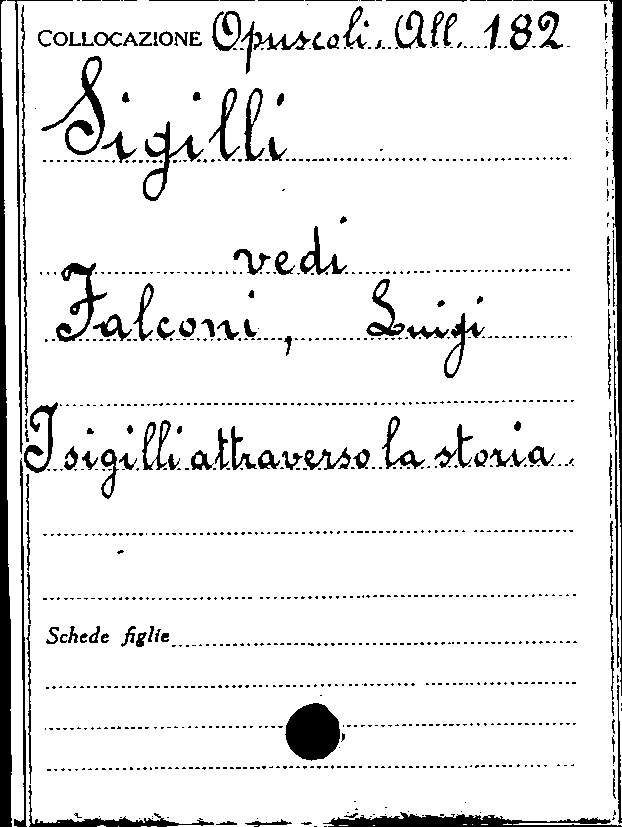 COLLOCAZIONE Opuscoli. All. 182
Sigilli
vedi
Falconi, Luigi
I sigilli attraverso la storia.
Schede figlie